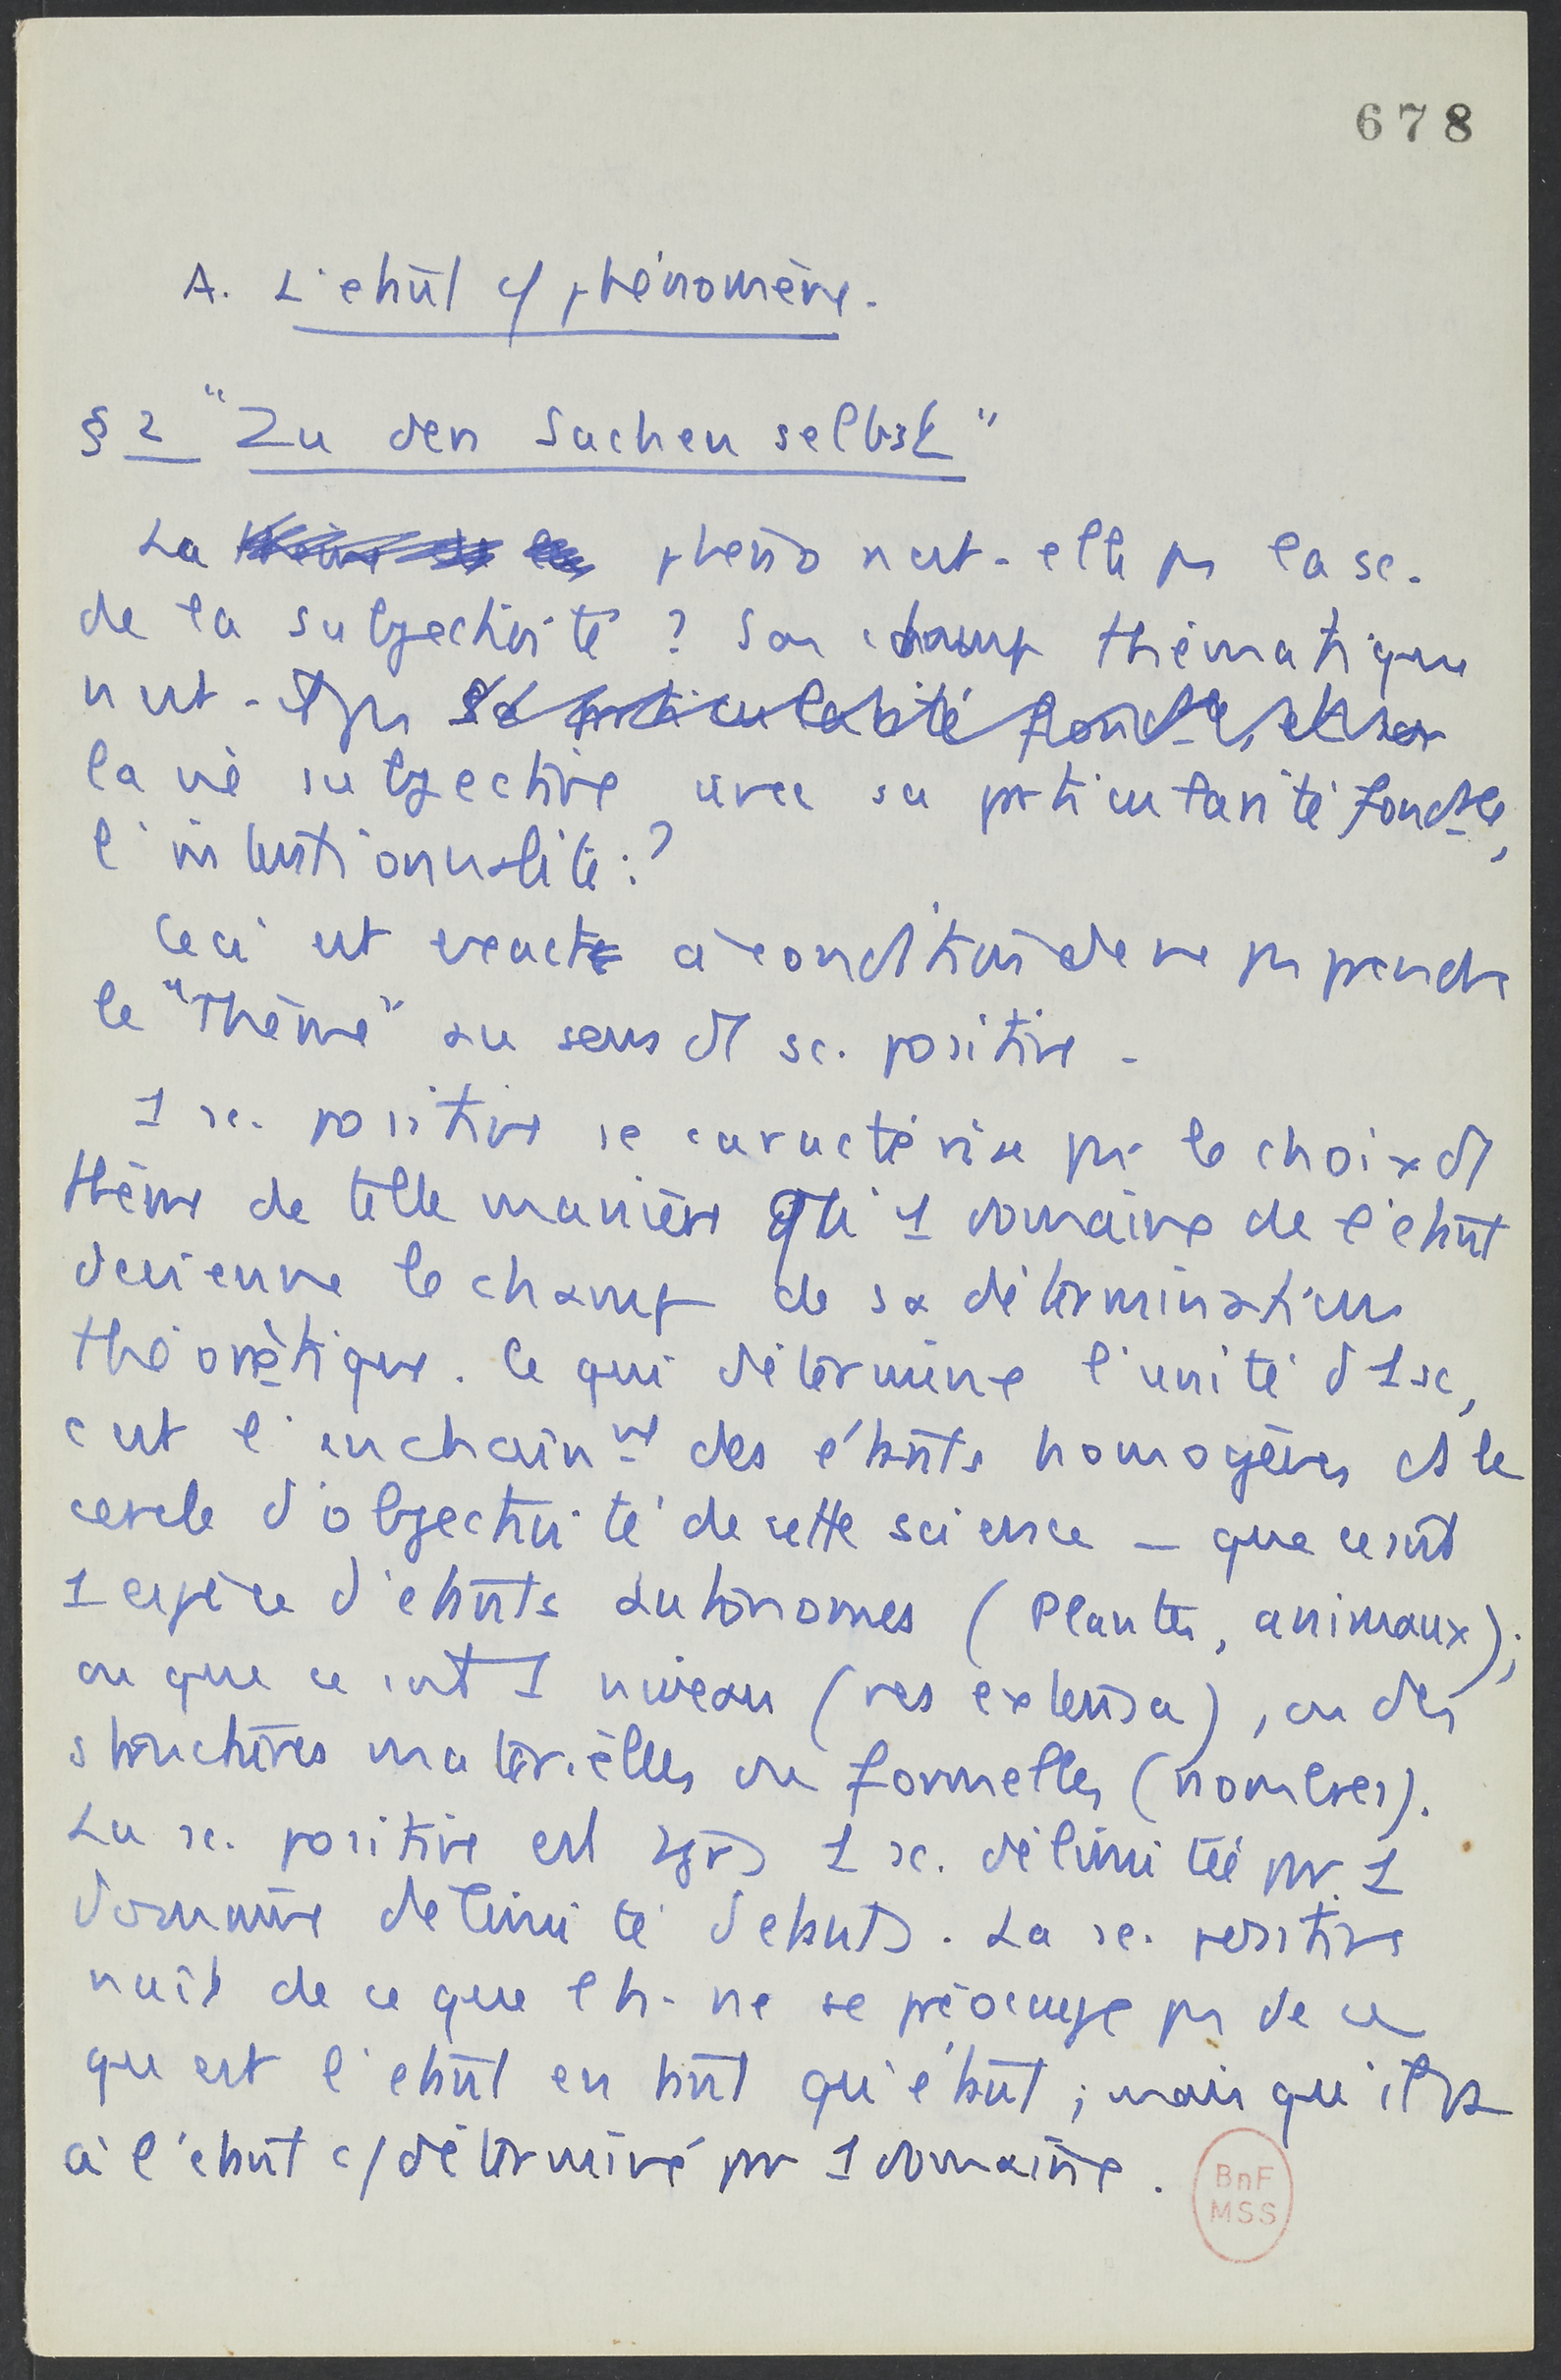 678
A. L'étūt c/ phénomène.
§ 2 "Zu den Sachen selbst"
La phéno n'est-elle ps la sc.
de la subjectivité ? Son champ thématique
n'est-il ps sa particularité fondtle, et son
la vie subjective avec sa pticularité fondtle,
l'intentionnalité ?
Ceci est exact à condition de ne ps prendre
le "thème" au sens d' sc. positive.
1 sc. positive se caractérise pr le choix d'
thème de telle manière qu'1 domaine de l'étūt
devienne le champ de sa détermination
théorétique. Ce qui détermine l'unité d'1 sc,
c'est l'enchaînnt des étūts homogènes ds le
cercle d'objectivité de cette science – que ce soit
1 espèce d'étūts autonomes (plantes, animaux);
ou que ce soit 1 niveau (res extensa), ou des
structures matérielles ou formelles (nombres).
La sc. positive est tjrs 1 sc. délimitée pr 1
domaine délimité d'étūts. La sc. positive
naît de ce que l'h. ne se préoccupe ps de ce
qu'est l'étūt en tūt qu'étūt ; mais qu'il
à l'étūt c/ déterminé pr 1 domaine.
BnF
MSS